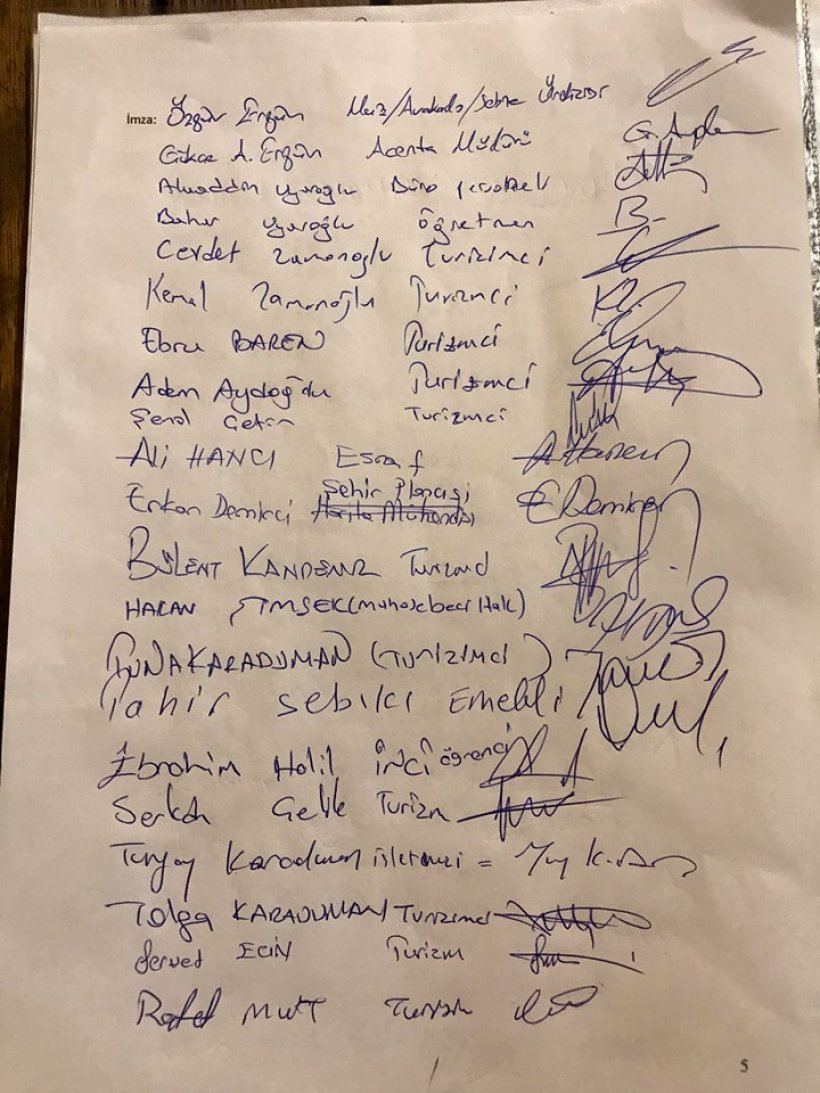 İmza: Özgür Ergün Muz/Avakado/Sebze Üreticisi
Gökce A. Ergün Acenta Müdürü
Alaaddin Uysaroğlu Büro personeli
Bahar Uysaroğlu Öğretmen
Cevdet Zamanoglu Turizimci
Kemal Zamanoğlu Turizmci
Ebru BAREN Turizmci
Adem Aydoğdu Turizmci
Şenol Çetin Turizmci
Ali HANCI Esnaf
Şehir Plancısı
Erkan Demirci Harita Mühendisi E Demirci
BÜLENT KANDEMİR Turizmci
HAKAN ŞİMŞEK (muhasebeci Halk)
TUNA KARADUMAN (TURİZİMCİ)
Tahir sebilci Emekli
İbrahim Halil İNCİ öğrenci
Serkan Çelik Turizm
Turgay Karaduman işletmeci =
Tolga KARADUMAN Turizmci
Servet ECİN Turizm
MUTT Turizm
5